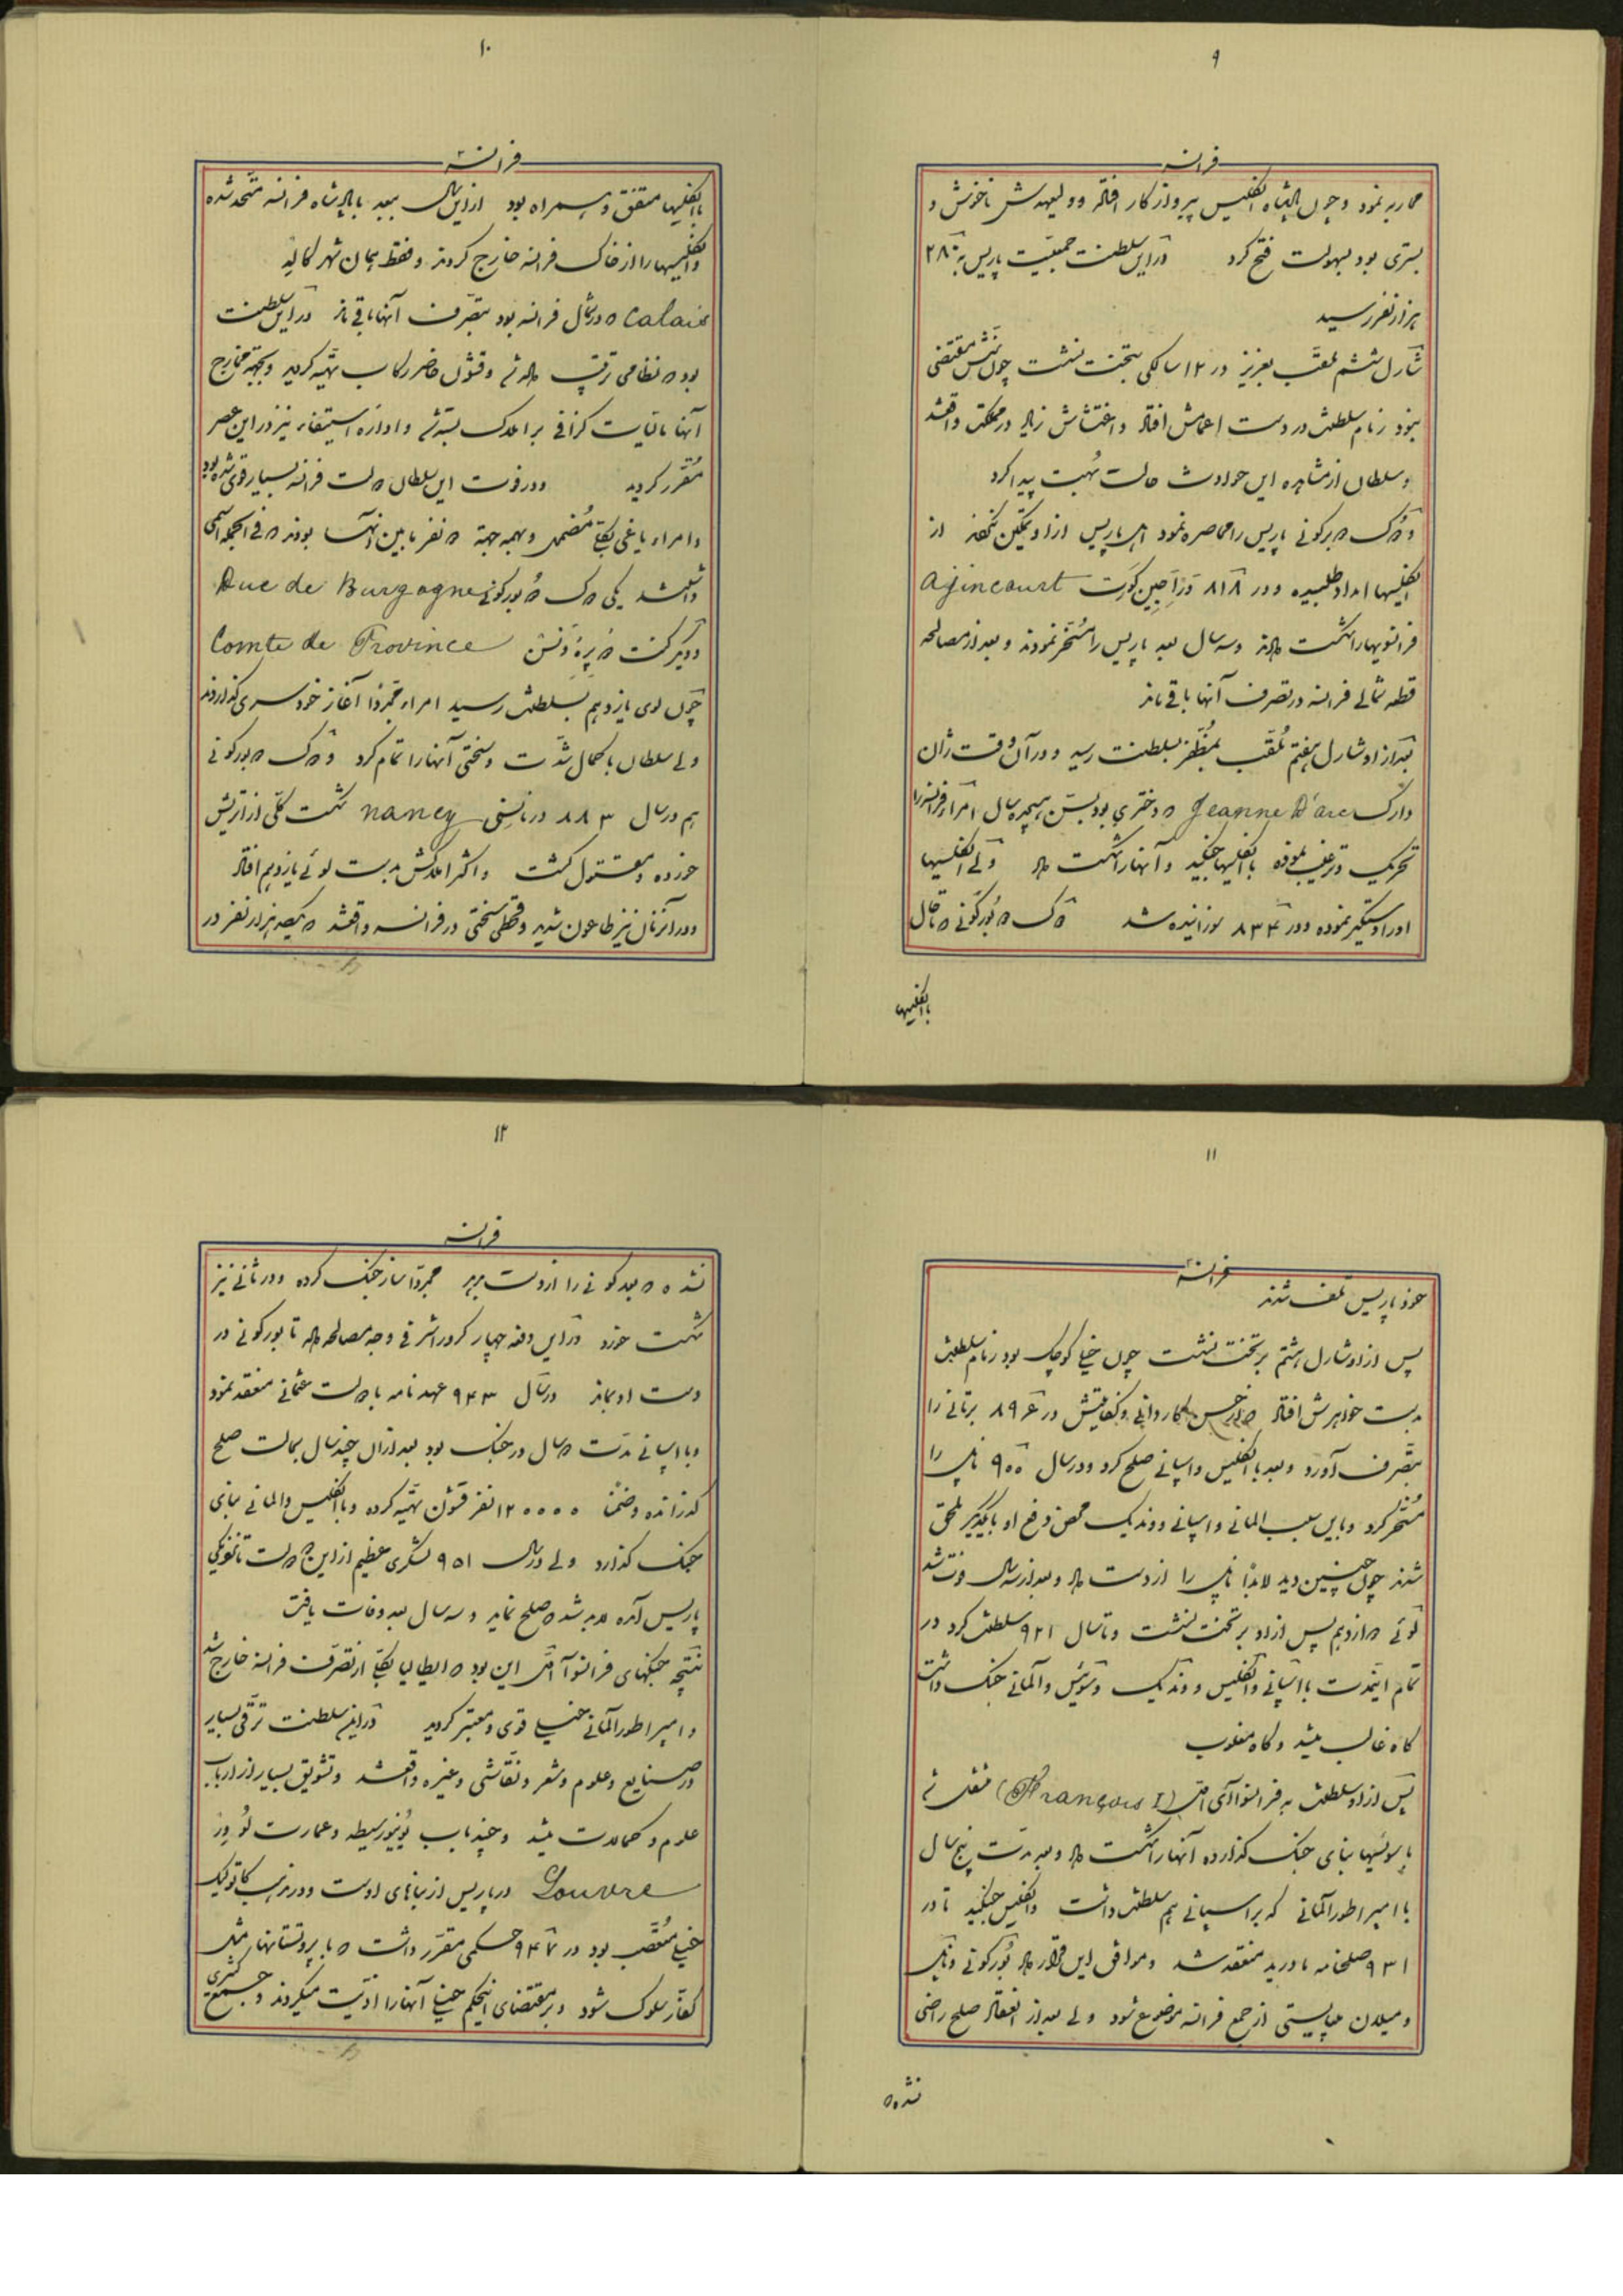 ۹
فرانسه
محاربه نمود و چون پادشاه انگلیس پیر و از کار افتاده و ولیعهدش ناخوش و
بستری بود بسهولت فتح کرد در این سلطنت جمعیت پاریس به ۲۸۰
هزار نفر رسید
شارل ششم ملقب بعزیز در ۱۲ سالگی بتخت نشست چون سنش مقتضی
نبود زمام سلطنت در دست اعمامش افتاد و اغتشاش زیاد در مملکت واقع شد
و سلطان از مشاهده این حوادث حالت بهت پیدا کرد
دوک د برگونی پاریس را محاصره نمود اهل پاریس از او تمکین نکردند از
انگلیسها امداد طلبیده و در ۸۱۸ در آجین کورت Ajincourt
فرانسویها را شکست دادند و سه سال بعد پاریس را مسخر نمودند و بعد از مصالحه
قطعه شمالی فرانسه در تصرف آنها باقی ماند
بعد از او شارل هفتم ملقب بمظفر بسلطنت رسید و در آن وقت ژان
دارک Jeanne D'arc که دختری بود بسن هیجده سال امراء فرانسه را
تحریک و ترغیب نموده با انگلیسها جنگید و آنها را شکست داد ولی انگلیسها
او را دستگیر نموده و در ۸۳۴ سوزانیده شد دوک د بورگونی که تا حال
با انگلیسها
۱۰
فرانسه
با انگلیسها متفق و همراه بود از این سال ببعد با پادشاه فرانسه متحد شده
و انگلیسها را از خاک فرانسه خارج کردند و فقط همان شهر کاله
Calais که در شمال فرانسه بود بتصرف آنها باقی ماند در این سلطنت
بود که نظامی ترتیب داده شد و قشون حاضر رکاب تهیه گردید و بجهة مخارج
آنها مالیات گزافی بر املاک بسته شد و اداره استیفاء نیز در این عصر
مقرر گردید و در فوت این سلطان دولت فرانسه بسیار قوی شده بود
و امراء یاغی بکلی مضمحل و بهمه جهة دو نفر مابین آنها بودند که فی الجمله اسمی
داشتند یکی دوک د بورگونی Duc de Burgogne
و دیگر کنت د پروونس Comte de Province
چون لوی یازدهم بسلطنت رسید امراء مجددا آغاز خودسری گذاردند
ولی سلطان با کمال شدت و سختی آنها را تمام کرد دوک د بورگونی
هم در سال ۸۸۳ در نانسی nancy شکست کلی از اتریش
خورده و مقتول گشت و اکثر املاکش بدست لوئی یازدهم افتاد
و در آنزمان نیز طاعون شدید و قحطی سختی در فرانسه واقع شد که یکصد هزار نفر در
۱۱
فرانسه
خود پاریس تلف شدند
پس از او شارل هشتم بر تخت نشست چون خیلی کوچک بود زمام سلطنت
بدست خواهرش افتاد که از حسن کاردانی و کفایتش در ۸۹۶ برتانی را
بتصرف آورد و بعد با انگلیس و اسپانی صلح کرد و در سال ۹۰۰ ناپل را
مسخر کرد و باین سبب المانی و اسپانی و وندیک محض دفع او با یکدیگر ملحق
شدند چون چنین دید لابدا ناپل را از دست داد و بعد از سه سال فوت شد
لوئی دوازدهم پس از او بر تخت نشست و تا سال ۹۲۱ سلطنت کرد در
تمام اینمدت با اسپانی و انگلیس و وندیک و سوئیس و آلمانی جنگ داشت
گاه غالب میشد و گاه مغلوب
پس از او سلطنت به فرانسوا آی اول (François I) منتقل شد
با سوئیسها بنای جنگ گذارده آنها را شکست داد و بعد مدت پنج سال
با امپراطور آلمانی که بر اسپانی هم سلطنت داشت و انگلیس جنگید تا در
۹۳۱ صلحنامه مادرید منعقد شد و موافق این قرار داد بورگونی و ناپل
و میلان میبایستی از جمع فرانسه موضوع شود ولی بعد از انعقاد صلح راضی
نشد که
۱۲
فرانسه
نشد که بورگونی را از دست بدهد مجددا ساز جنگ کرده و در ثانی نیز
شکست خورد در این دفعه چهار کرور اشرفی وجه مصالحه داد تا بورگونی در
دست او بماند در سال ۹۴۳ عهدنامه با دولت عثمانی منعقد نمود
و با اسپانی مدت دو سال در جنگ بود بعد از آن چند سال بحالت صلح
گذرانده و ضمنا ۱۲۰۰۰۰ نفر قشون تهیه کرده و با انگلیس و المانی بنای
جنگ گذارد ولی در سال ۹۵۱ لشگری عظیم از این دو دولت تا نزدیکی
پاریس آمده لابد شد که صلح نماید و سه سال بعد وفات یافت
نتیجه جنگهای فرانسوا اول این بود که ایطالیا بکلی از تصرف فرانسه خارج شد
و امپراطور آلمانی خیلی قوی و معتبر گردید در این سلطنت ترقی بسیار
در صنایع و علوم و شعر و نقاشی و غیره واقع شد و تشویق بسیار از ارباب
علوم و کمالات میشد و چند باب یونیورسیطه و عمارت لوور
Louvre در پاریس از بناهای اوست و در مذهب کاتولیک
خیلی متعصب بود در ۹۴۷ حکمی مقرر داشت که با پروتستانها مثل
کفار سلوک شود و بر مقتضای اینحکم خیلی آنها را اذیت میکردند و جمع کثیری